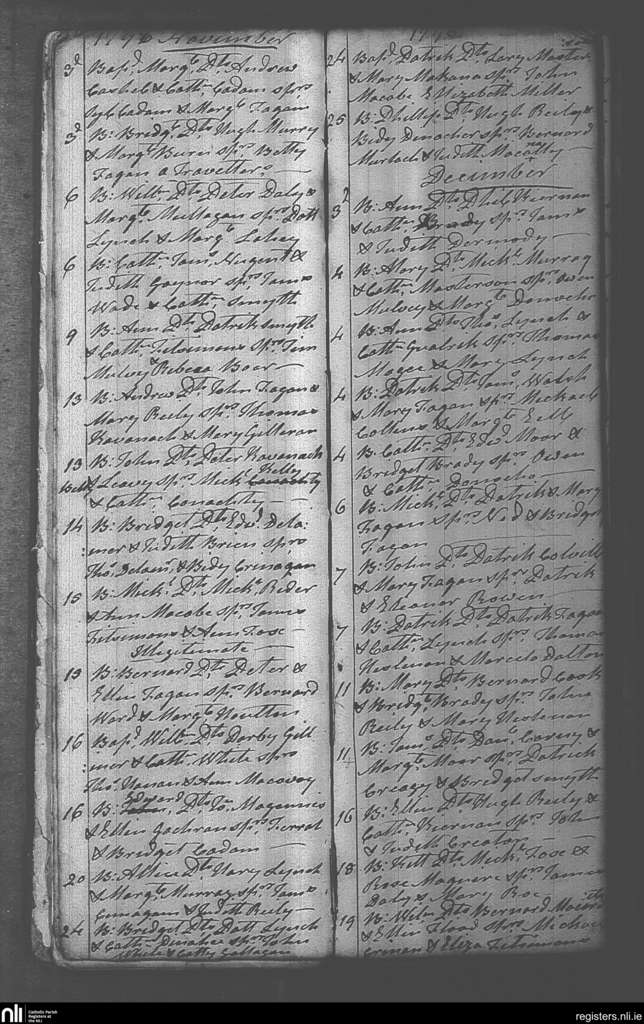 1796 November
3d Bapd. Margt. Dtr. Andrew
Cashel & Cathn. Cadam sprs
Cadam & Margt. Fagan
3d B. Bridgt. Dtr. Hugh Murry
& Margt. sprs. Betty
Fagan a Traveller
6 B. Willm. Dtr. Peter Daly &
Margt. Mullagan sprs. Patt
Lynch & Margt. Lehey
6 B. Cathn. Jams. Nugent &
Judith Gaynor sprs. Jams
Wade & Cathn. Smyth
9 B. Ann Dtr. Patrick Smyth
& Cathn. Fitsimons sprs. Jim
Mulvy & Rebecca
13 B. Andrew Dtr. John Fagan &
Mary Reily sprs. Thomas
Kavanach & Mary Gilleran
13 B. John Dtr. Peter Kavanach
& Leavy sprs. Mick. Kelly
& Cathn. Conachty
14 B. Bridget Dtr. Edwd. Dela:
:mer & Judith Brien sprs.
Thos. Delam. & Bidy Crinagan
15 B. Mick. Dtr. Mick. Reder
& Ann Macabe sprs. James
Fitsimons & Ann Foxe
Illegitimate
15 B. Bernard Dtr. Peter &
Ellen Fagan sprs. Bernard
Ward & Margt. Noulten
16 Bapd. Willm. Dtr. Darby Gill
:mer & Cathn. White sprs
Thos. & Ann Macavoy
16 B. Edward Dtr. Jo. Magennis
& Ellen Gochran sprs.
& Bridget Cadam
20 B. Allice Dtr. Nary Lynch
& Margt. Murray sprs. Jams
Finnagan & Judith Reily
24 B. Bridget Dtr. Patt Lynch
& Cathn. sprs. John
White & Catty Gallagan
24 Bapd. Patrick Dtr. Lary Master
& Mary Makana sprs. John
Macabe & Elizabeth Miller
25 B. Phillip Dtr. Hugh Reily &
Bidy Donocher sprs. Bernard
Murtach & Judeth Macarthy
December
3d B. Ann Dtr. Phel. Kiernan
& Cathn. Brady sprs. Jams
& Judeth Dermody
4 B. Mary Dtr. Mick. Murray
& Cathn. Masterson sprs. Owen
Mulvey & Margt. Donocher
4 B. Ann Dtr. Thos. Lynch &
Cathn. Goalrick sprs. Thomas
Magee & Mary Lynch
4 B. Patrick Dtr. Jams. Walsh
& Mary Fagan sprs. Michael
Collins & Margt.
4 B. Cathn. Dtr. Edwd. Moor &
Bridget Brady sprs. Owen
& Cathn. Donocho
6 B. Mick. Dtr. Patrick & Mary
Fagan sprs. Ned & Bridget
Fagan
7 B. John Dtr. Patrick Colvill
& Mary Fagan sprs. Patrick
& Eleanor Bowen
7 B. Patrick Dtr. Patrick Fagan
& Cathn. Lynch sprs. Thomas
Heslenan & Marcela Dalton
11 B. Mary Dtr. Bernard Cook
& Bridgt. Brady sprs. John
Reily & Mary Heslenan
11 B. Jams. Dtr. Danl. Carny &
Margt. Moor sprs. Patrick
Creagy & Bridget Smyth
16 B. Ellen Dtr. Hugh Reily &
Cathn. Kiernan sprs. John
& Judeth Creaton
18 B. Kitt Dtr. Mick. Foxe &
Rose Maguere sprs. James
Daly & Mary Roe
19 B. Willm. Dtr. Bernard
& Ellen Flood sprs. Michael
& Eliza Fitsimons
nli
Catholic Parish
Registers at
the NLI
registers.nli.ie